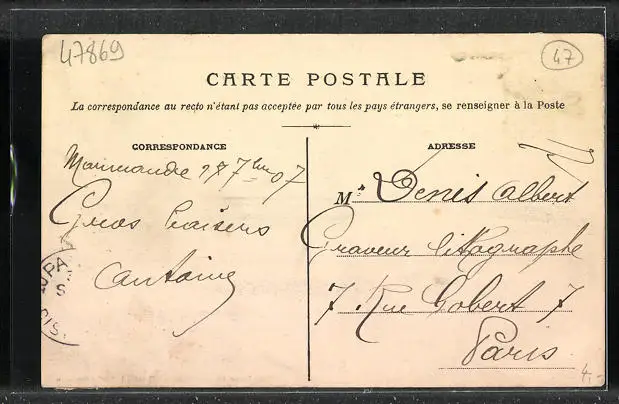 47869
47
CARTE POSTALE
La correspondance au recto n'étant pas acceptée par tous les pays étrangers, se renseigner à la Poste
CORRESPONDANCE
Marmande 7bre 07
Gros baisers
Antoine
ADRESSE
M Denis Albert
Graveur litographe
7 Rue Gobert 7
Paris
4.-
PA
IS.